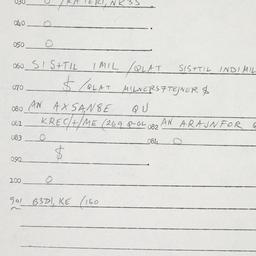 030 0
040 0
050 0
060 SISTTIL IMIL /QLAT SISTTIL INDIMIL
070 $ /QLAT MILNERSTTEJNER $
080 AN AXSANBE QU
081 KREC/+/ME (269 8-02 082 AN ARAJNFOR
083 0 084 0
090 $
100 0
901 B3D1, KE /160